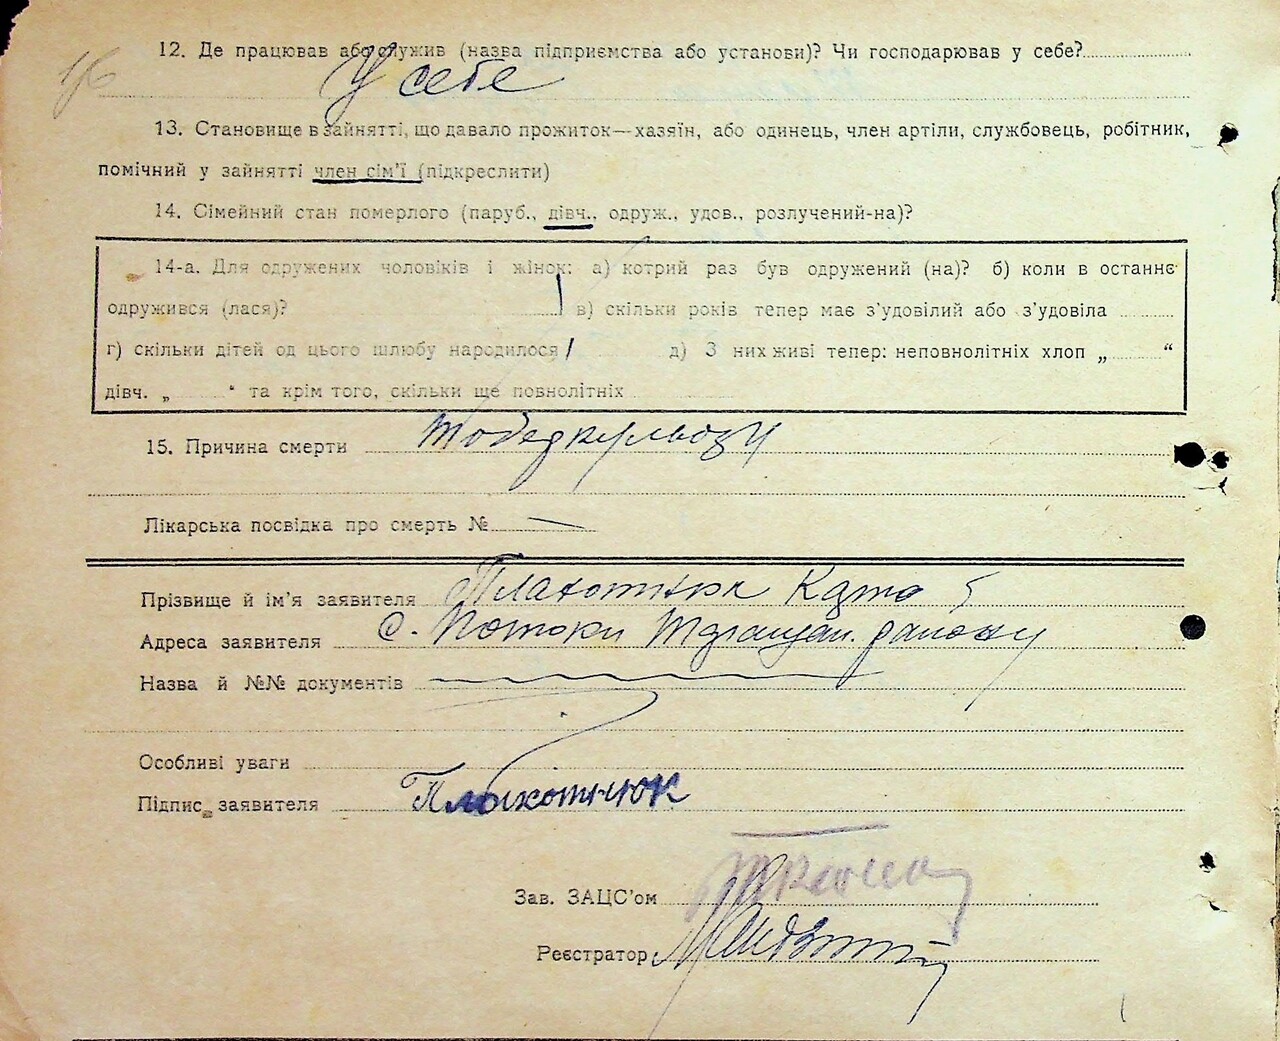 12. Де працював або служив (назва підприємства або установи)? Чи господарював у себе?
У себе
13. Становище в зайнятті, що давало прожиток—хазяїн, або одинець, член артіли, службовець, робітник,
помічний у зайнятті член сім'ї (підкреслити)
14. Сімейний стан померлого (паруб., дівч., одруж., удов., розлучений-на)?
14-а. Для одружених чоловіків і жінок: а) котрий раз був одружений (на)? б) коли в останнє
одружився (лася)? в) скільки років тепер має з'удовілий або з'удовіла
г) скільки дітей од цього шлюбу народилося д) З них живі тепер: неповнолітніх хлоп „ “
дівч. „ “ та крім того, скільки ще повнолітніх
15. Причина смерти
Лікарська посвідка про смерть № —
Прізвище й ім'я заявителя Плахотнюк
Адреса заявителя с. Потоки району
Назва й №№ документів
Особливі уваги
Підпис заявителя Плахотнюк
Зав. ЗАЦС'ом
Реєстратор